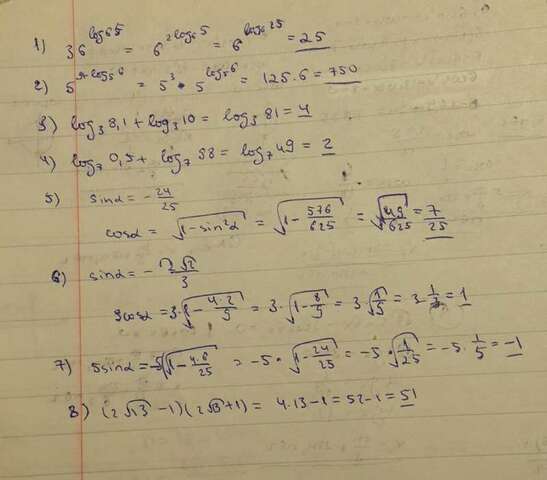 1) 36^{log_6 5} = 6^{2log_6 5} = 6^{log_6 25} = 25
5^3 · 5^{log_5 6} = 125·6 = 750
3) log_3 8,1 + log_3 10 = log_3 81 = 4
4) log_7 0,5 + log_7 98 = log_7 49 = 2
5) sinα = -24/25
cosα = √(1-sin²α) = √(1-576/625) = √(49/625) = 7/25
6) sinα = -2√2/3
3cosα = 3·√(1-4·2/9) = 3·√(1-8/9) = 3·√(1/9) = 3·1/3 = 1
7) 5sinα = -5√(1-4·6/25) = -5·√(1-24/25) = -5·√(1/25) = -5·1/5 = -1
8) (2√13 -1)(2√13+1) = 4·13-1 = 52-1 = 51